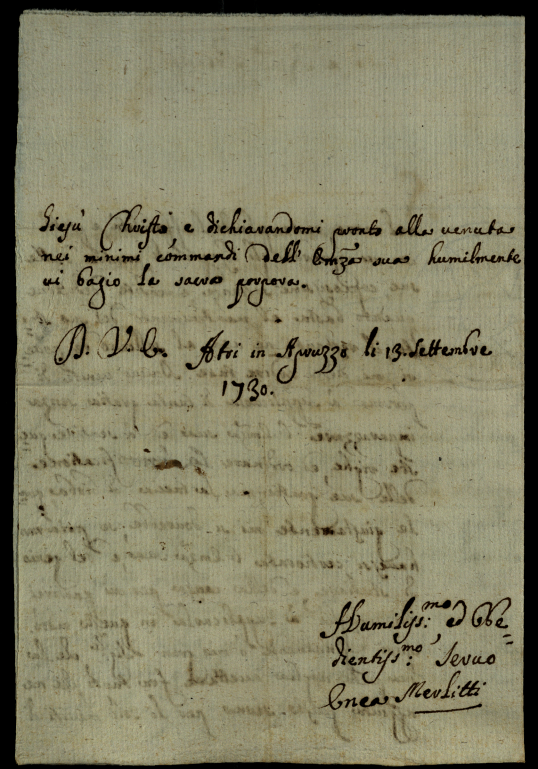 Giesù Christo e dichiarandomi pronto alla venuta
nei minimi commandi dell' Emza sua humilmente
vi bagio la sacra porpora.
D. V. E. Atri in Apruzzo li 13. Settembre
1730.
Humiliss:mo ed Obe=
dientiss:mo Servo
Enea Merlitti